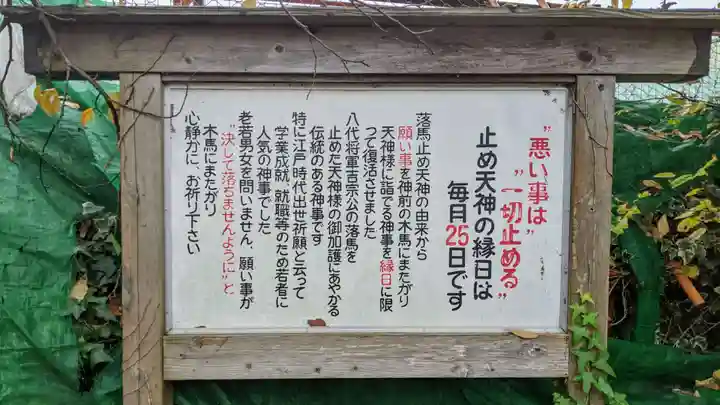 "悪い事は"
"一切止める"
止め天神の縁日は
毎月25日です
落馬止め天神の由来から
願い事を神前の木馬にまたがり
天神様に詣でる神事を縁日に限
って復活させました
八代将軍吉宗公の落馬を
止めた天神様の御加護にあやかる
伝統のある神事です
特に江戸時代出世祈願と云って
学業成就、就職等のため若者に
人気の神事でした
老若男女を問いません、願い事が
"決して落ちませんように"と
木馬にまたがり
心静かに、お祈り下さい